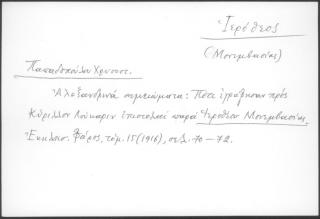 Ἱερόθεος
(Μονεμβασίας)
Παπαδοπούλου Χρυσοστ.
Ἀλεξανδρινὰ σημειώματα: Πότε ἐγράφησαν πρὸς
Κύριλλον Λούκαριν ἐπιστολαὶ παρὰ Ἱεροθέου Μονεμβασίας.
Ἐκκλησ. Φάρος, τόμ. 15 (1916), σελ. 70-72.